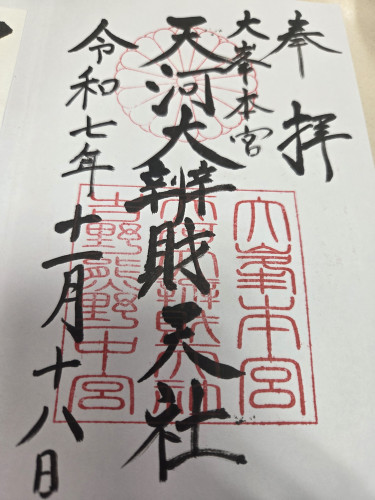 奉拝
大峯本宮
天河大辨財天社
令和七年十一月十八日
大峯本宮
天河大辨財天社
吉野熊野中宮